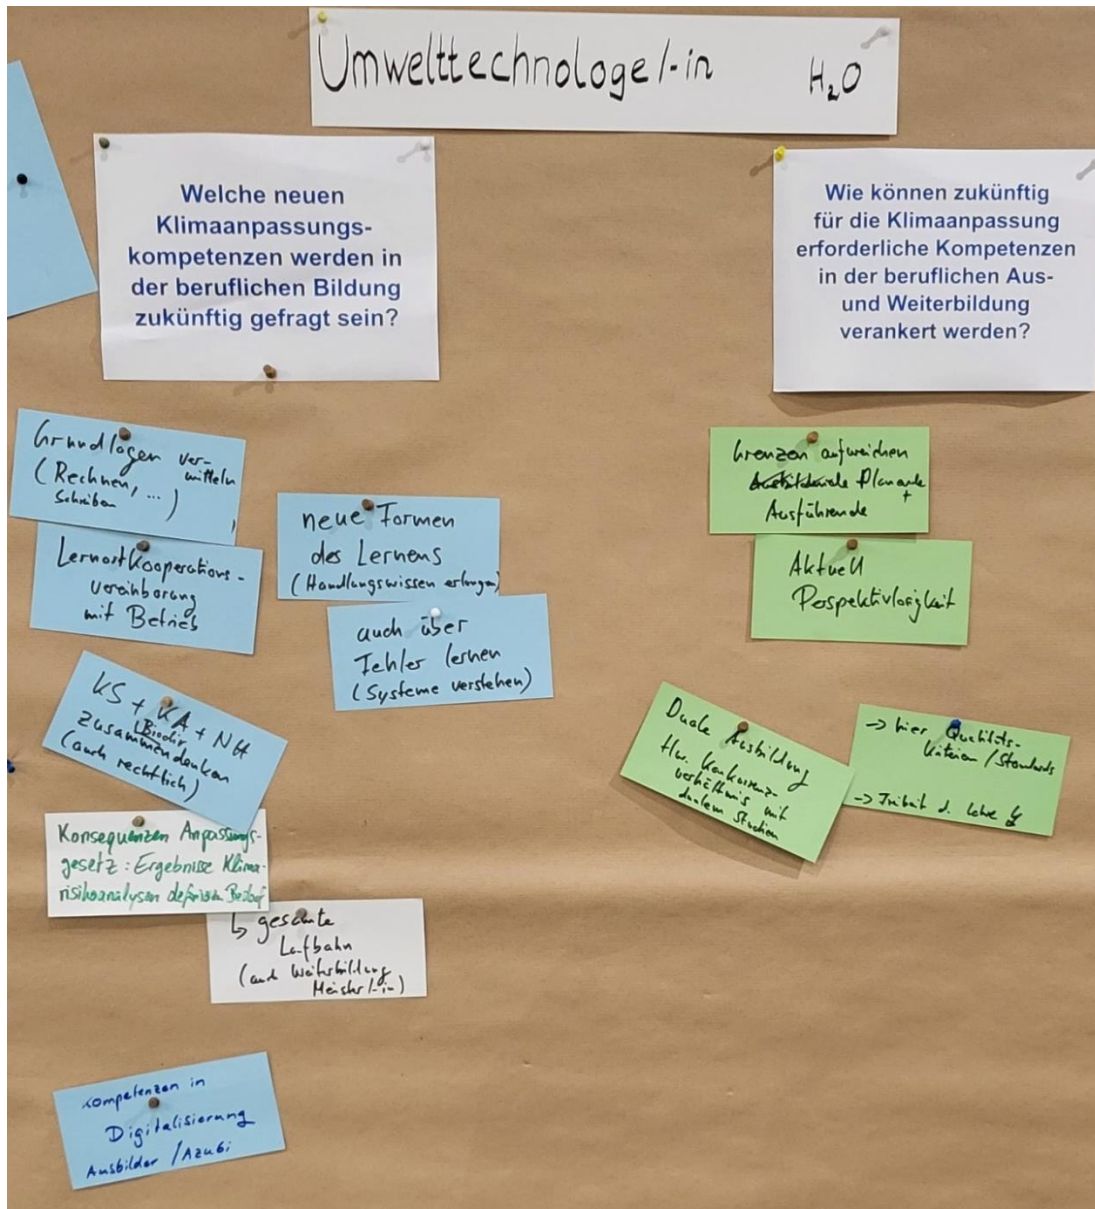 Umwelttechnologe/-in H₂O
Welche neuen
Klimaanpassungs-
kompetenzen werden in
der beruflichen Bildung
zukünftig gefragt sein?
Wie können zukünftig
für die Klimaanpassung
erforderliche Kompetenzen
in der beruflichen Aus-
und Weiterbildung
verankert werden?
Grundlagen ver-
mitteln
(Rechnen, ...
Schreiben )
Lernortkooperations-
vereinbarung
mit Betrieb
neue Formen
des Lernens
(Handlungswissen erlangen)
auch über
Fehler lernen
(Systeme verstehen)
KS + KA + NH
(Biodiv.
zusammendenken
(auch rechtlich)
Konsequenzen Anpassungs-
gesetz: Ergebnisse Klima-
risikoanalysen definieren Bedarf
↳ gesamte
Laufbahn
(auch Weiterbildung
Meister/-in)
Kompetenzen in
Digitalisierung
Ausbilder / Azubi
Grenzen aufweichen
Planende
+
Ausführende
Aktuell
Perspektivlosigkeit
Duale Ausbildung
Hw. Konkurrenz-
verhältnis mit
dualem Studium
→ hier Qualitäts-
kriterien / Standards
→ Freiheit d. Lehre